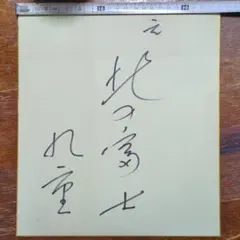 元
北の富士
九重